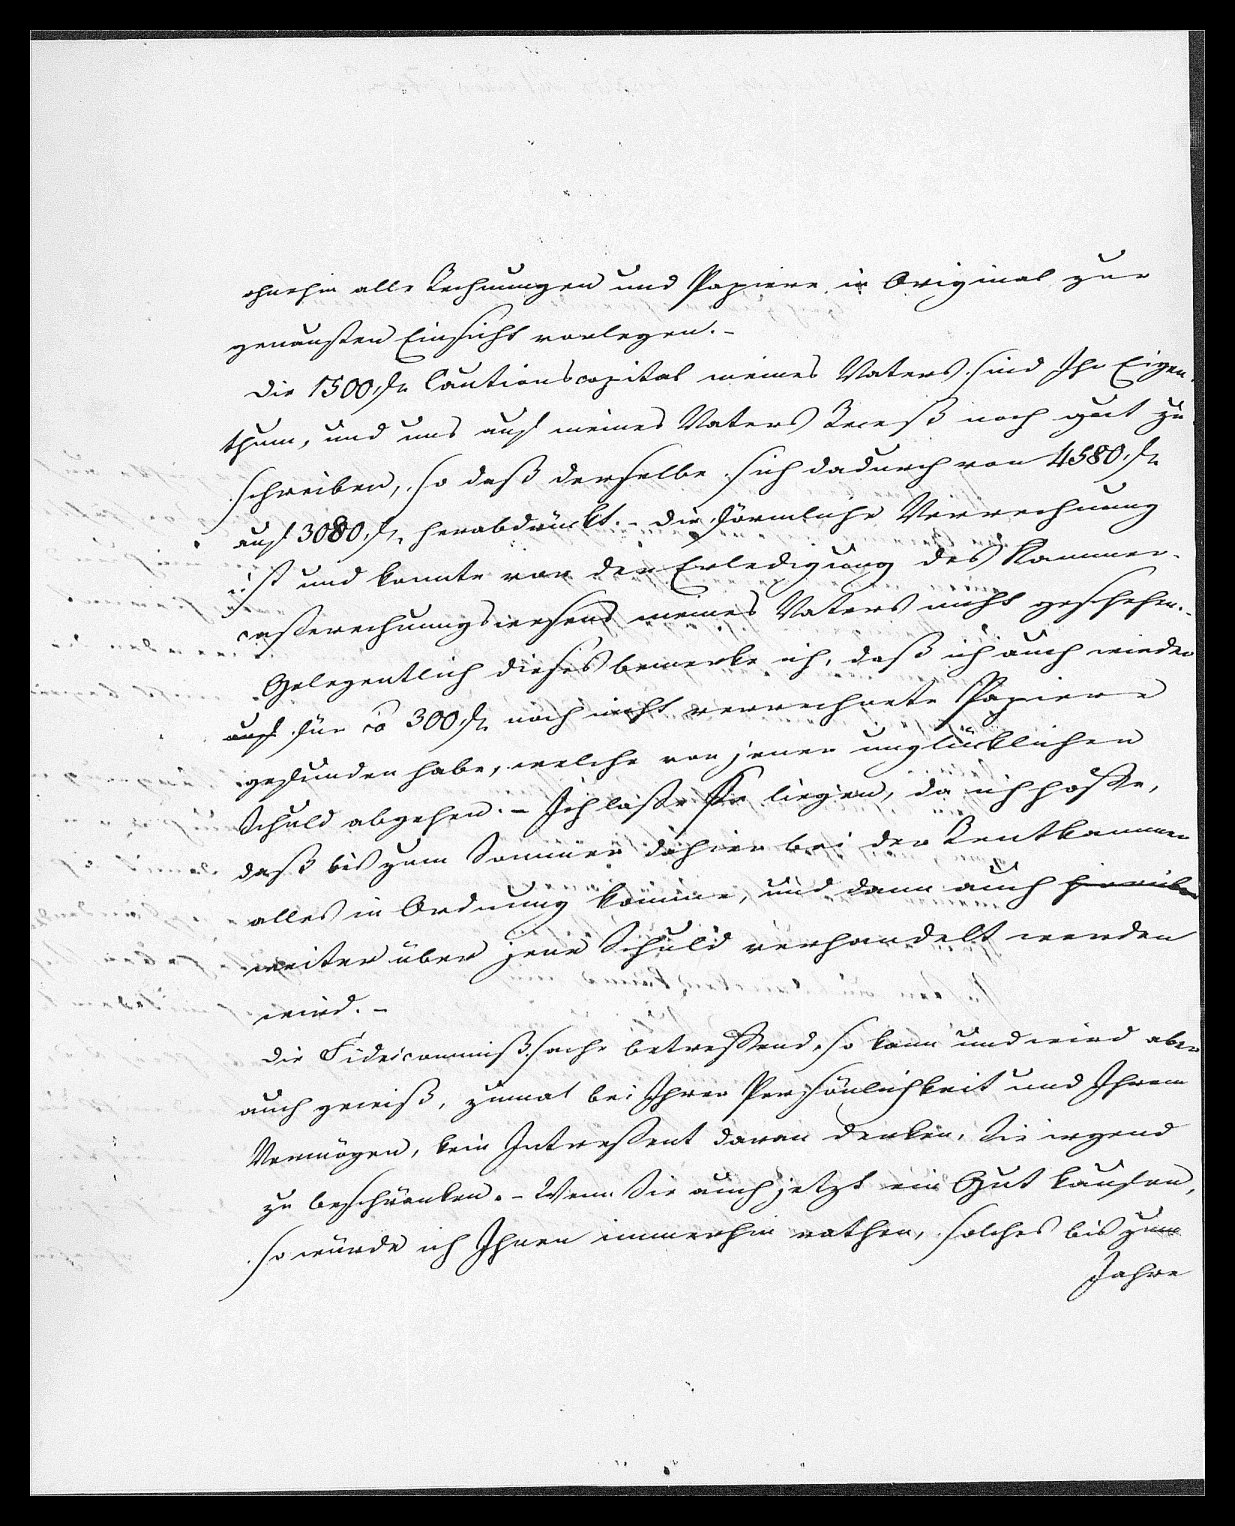 ohnehin alle Rechnungen und Papiere in Original zur
genausten Einsicht vorlegen. –
Die 1500 fl Cautionscapital meines Vaters sind Ihr Eigen-
thum, und uns auf meines Vaters Receß noch gut zu
schreiben, so daß derselbe sich dadurch von 4580 fl
auf 3080 fl. herabdrückt. – Die förmliche Verrechnung
ist und konnte vor der Erledigung des Kammer-
casserechnungswesens meines Vaters nicht geschehen. –
Gelegentlich dieses bemerke ich, daß ich auch wieder
auf für ca 300 fl noch nicht verrechnete Papiere
gefunden habe, welche von jener unglücklichen
Schuld abgehen. – Ich lasse sie liegen, da ich hoffe,
daß bis zum Sommer dahier bei der Rentkammer
alles in Ordnung komme, und dann auch hierüber
weiter über jene Schuld verhandelt werden
wird. –
Die Fideicommißsache betreffend, so kann und wird aber
auch gewiß, zumal bei Ihrer Persönlichkeit und Ihrem
Vermögen, kein Intressent daran denken, Sie irgend
zu beschränken. – Wenn Sie auch jetzt ein Gut kaufen,
so würde ich Ihnen immerhin rathen, solches bis zum
Jahre